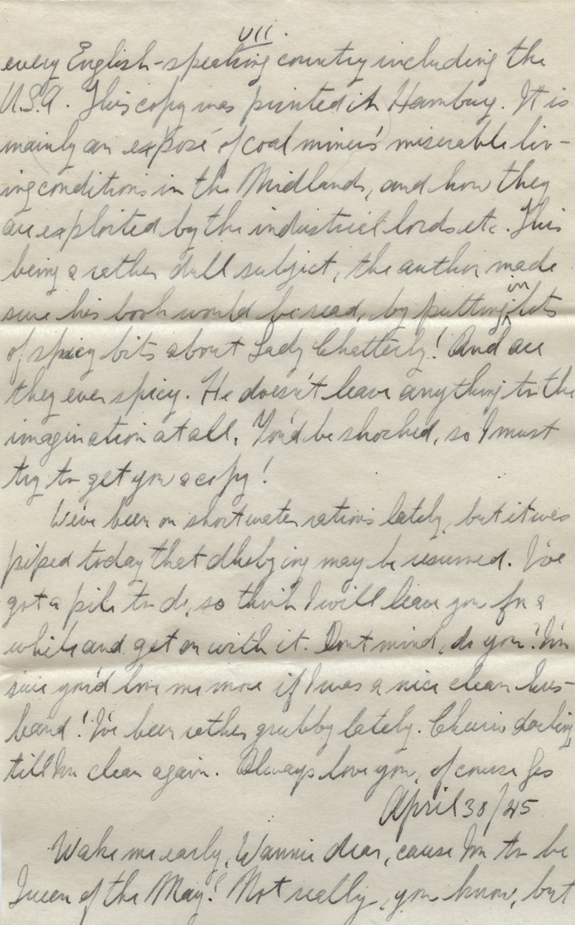 VII.
every English-speaking country including the
U.S.A. This copy was printed in Hamburg. It is
mainly an exposé of coal miners' miserable liv-
ing conditions in the Midlands, and how they
are exploited by the industrial lords etc. This
being a rather dull subject, the author made
sure his book would be read, by putting in lots
of spicy bits about Lady Chatterly! And are
they ever spicy. He doesn't leave anything to the
imagination at all. You'd be shocked, so I must
try to get you a copy!
We've been on short water rations lately, but it was
piped today that dhobying may be resumed. I've
got a pile to do, so think I will leave you for a
while and get on with it. Don't mind, do you? I'm
sure you'd love me more if I was a nice clean hus-
band! I've been rather grubby lately. Cheerio darling
till I'm clean again. Always love you, of course
April 30/45
Wake me early, Wannie dear, cause I'm to be
Queen of the May! Not really, you know, but